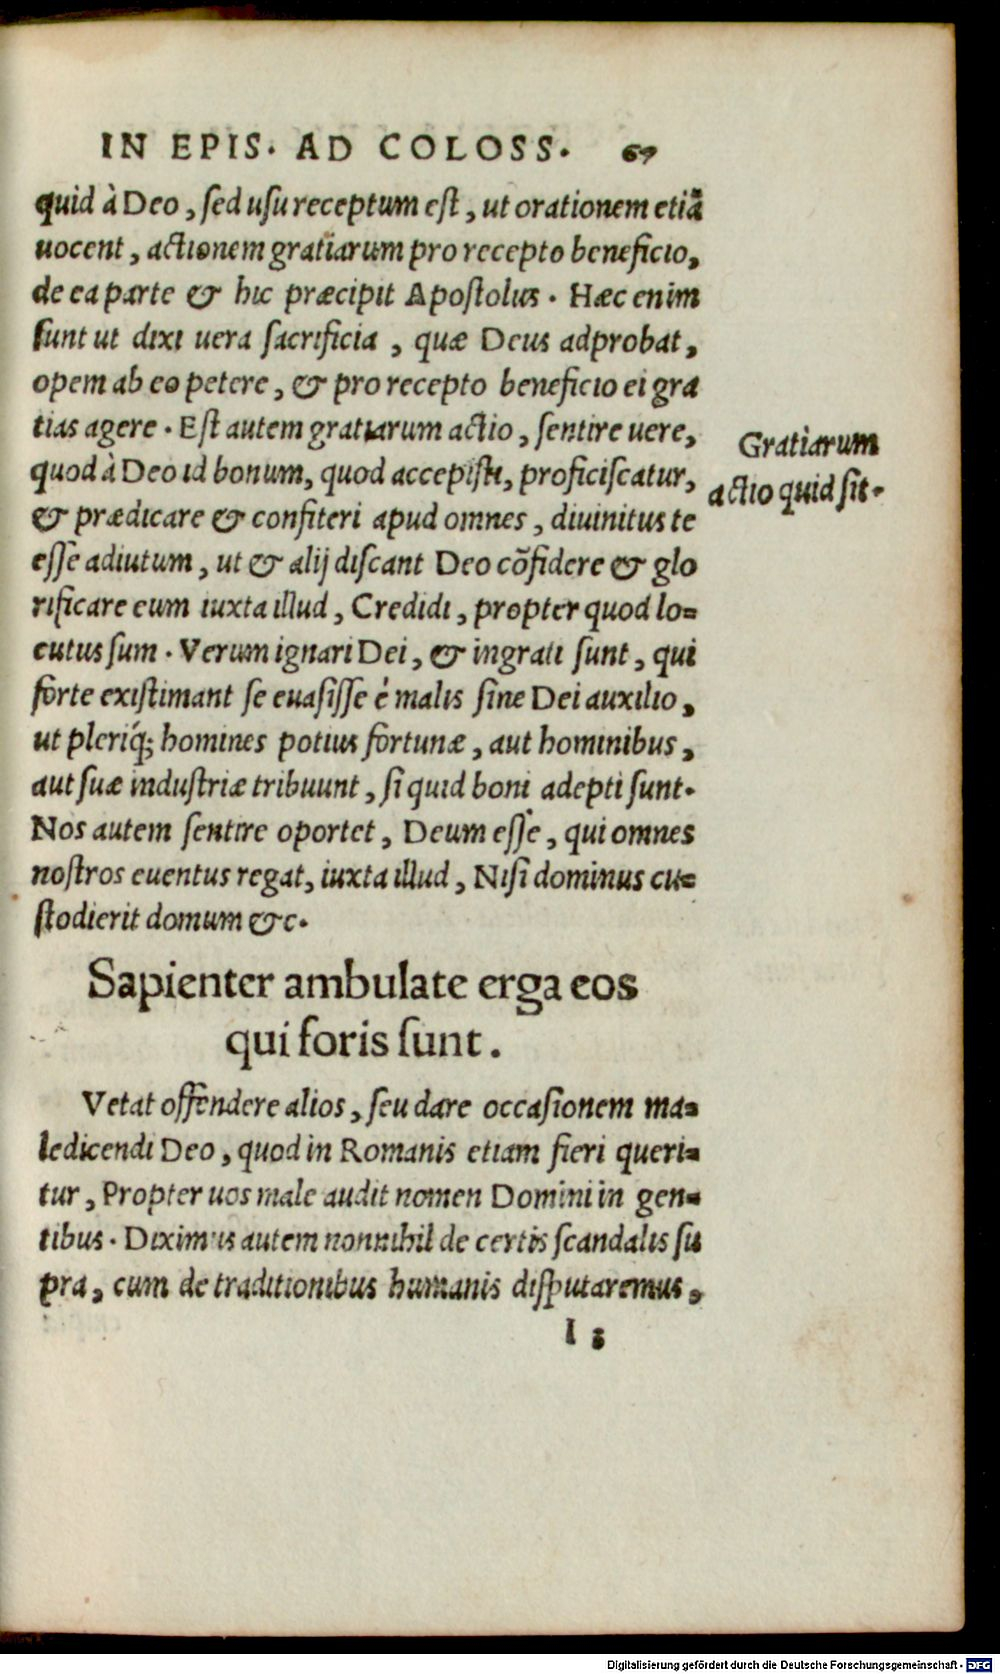 IN EPIS. AD COLOSS. 67
quid à Deo, sed usu receptum est, ut orationem etiã
uocent, actionem gratiarum pro recepto beneficio,
de ea parte & hic præcipit Apostolus. Hæc enim
sunt ut dixi uera sacrificia, quæ Deus adprobat,
opem ab eo petere, & pro recepto beneficio ei gra
tias agere. Est autem gratiarum actio, sentire uere,
quod à Deo id bonum, quod accepisti, proficiscatur,
& prædicare & confiteri apud omnes, diuinitus te
esse adiutum, ut & alij discant Deo cõfidere & glo
rificare eum iuxta illud, Credidi, propter quod lo=
cutus sum. Verum ignari Dei, & ingrati sunt, qui
forte existimant se euasisse è malis sine Dei auxilio,
ut pleriq́; homines potius fortunæ, aut hominibus,
aut suæ industriæ tribuunt, si quid boni adepti sunt.
Nos autem sentire oportet, Deum esse, qui omnes
nostros euentus regat, iuxta illud, Nisi dominus cu=
stodierit domum &c.
Gratiarum
actio quid sit.
Sapienter ambulate erga eos
qui foris sunt.
Vetat offendere alios, seu dare occasionem ma=
ledicendi Deo, quod in Romanis etiam fieri queri=
tur, Propter uos male audit nomen Domini in gen=
tibus. Diximus autem nonnihil de certis scandalis su
pra, cum de traditionibus humanis disputaremus,
I 3
Digitalisierung gefördert durch die Deutsche Forschungsgemeinschaft - DFG